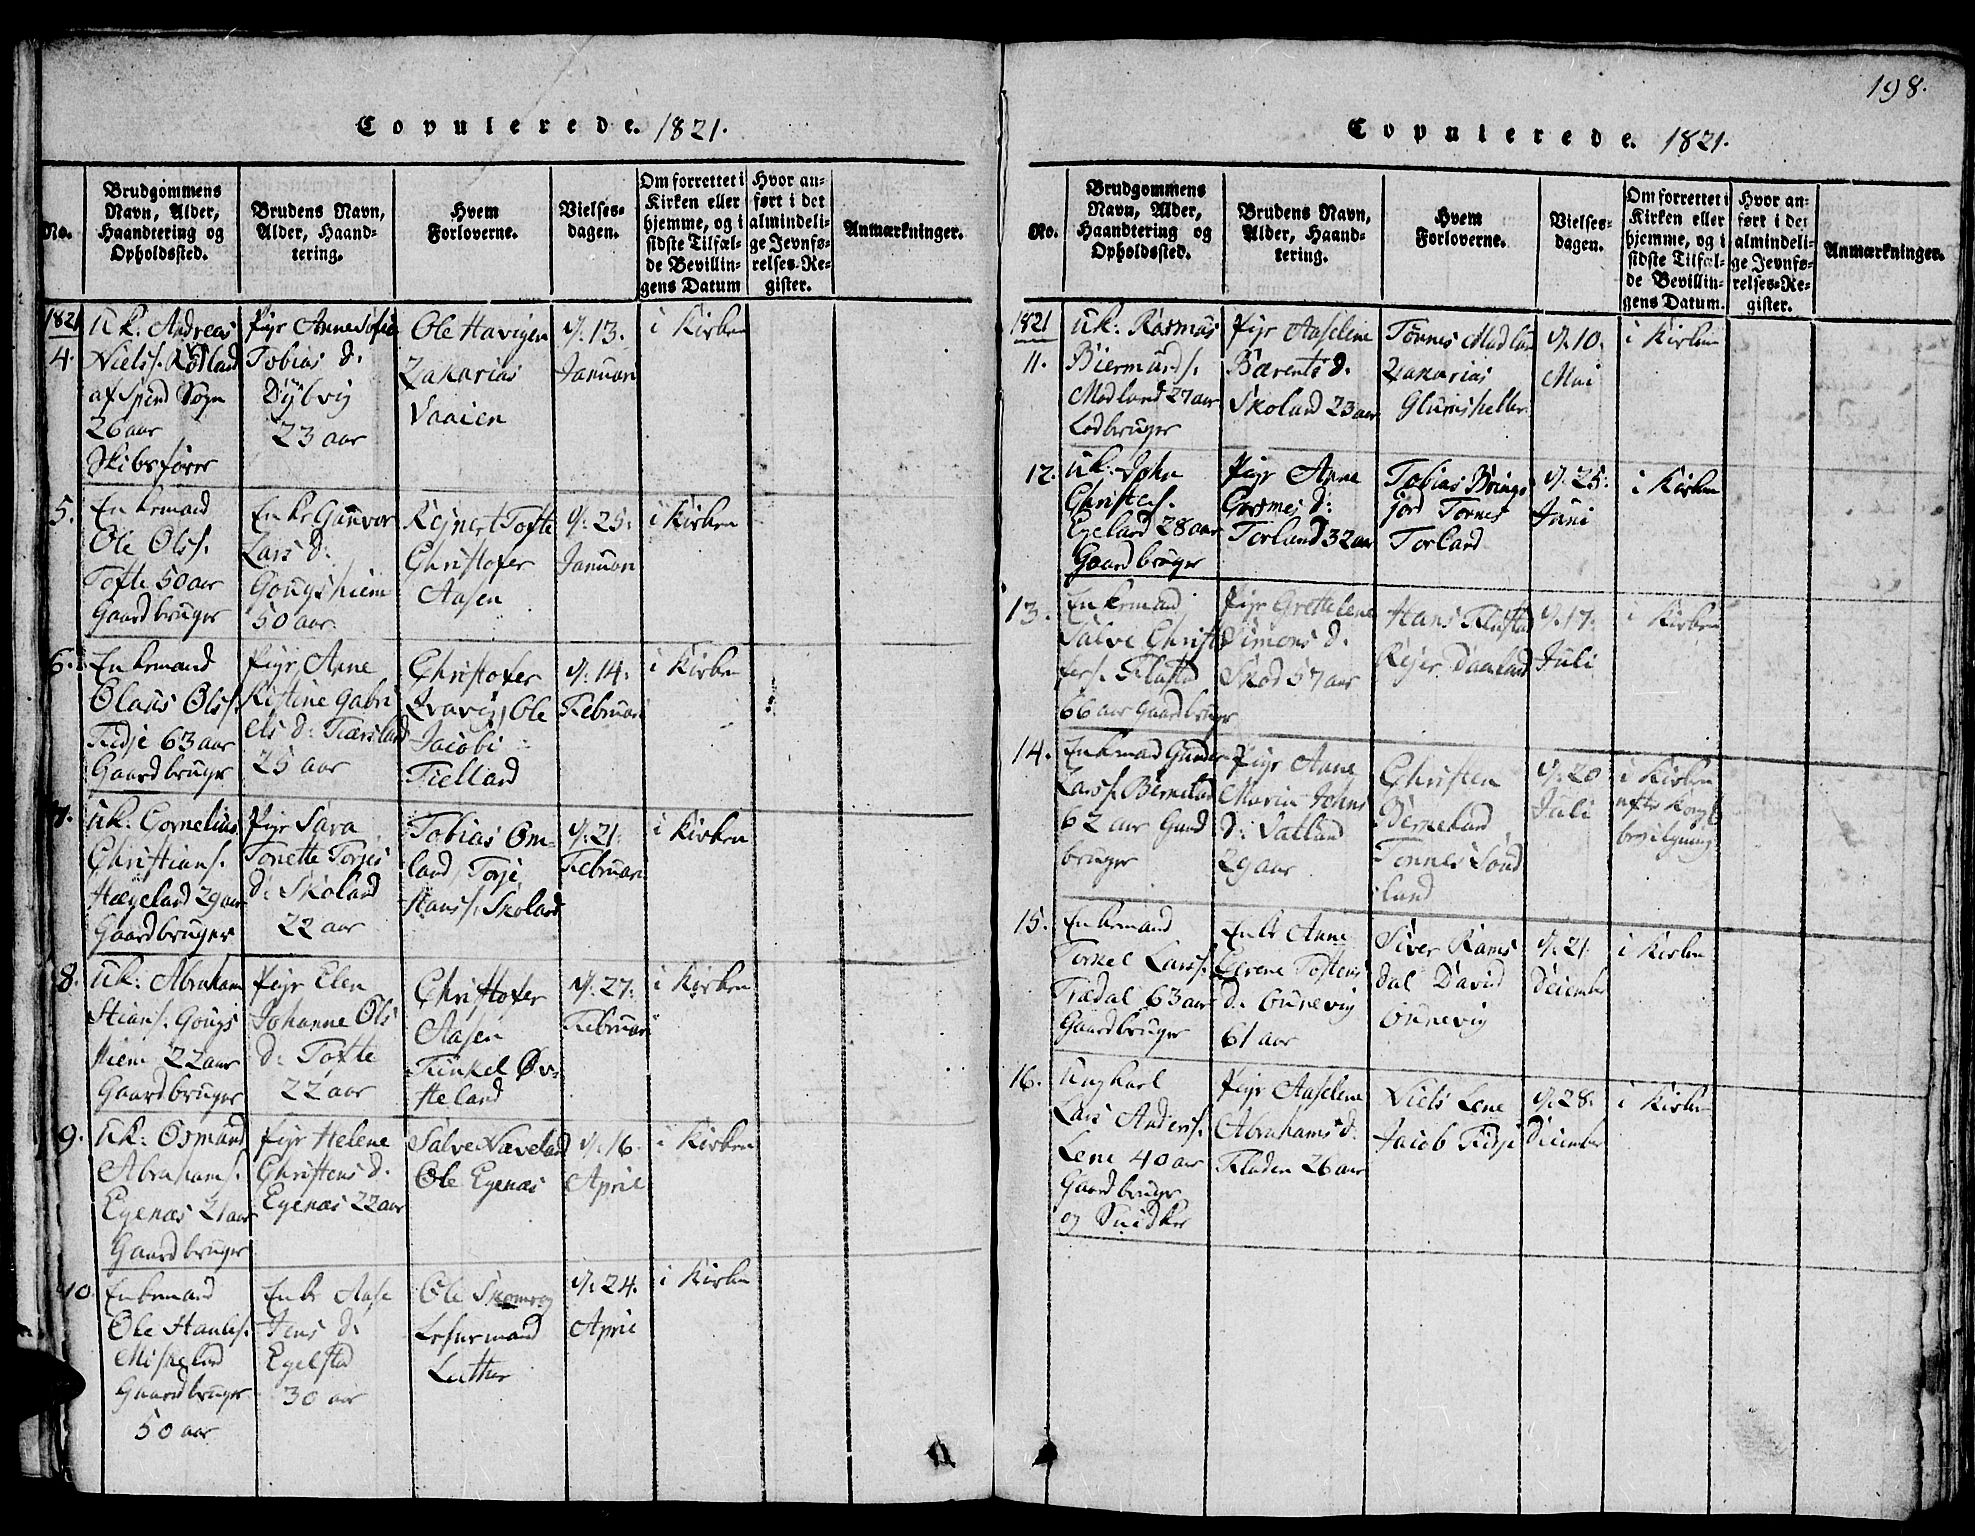 Copulerede. 1821.
No.
Brudgommens
Navn, Alder,
Haandtering og
Opholdssted.
Brudens Navn,
Alder, Haand-
tering.
Hvem
Forloverne.
Vielses-
dagen.
Om forrettet i
Kirken eller
hjemme, og i
sidste Tilfæl-
de Bevillin-
gens Datum
Hvor an-
ført i det
almindeli-
ge Jevnfø-
relses-Re-
gister.
Anmærkninger.
1821
4.
Uk: Andreas
Niels s. Rødland
af Spend Sogn
26 aar
Skibsfører
Pige Anne Sofie
Tobias d:
Dybvig
23 aar
Ole Havigen
Zakarias
Vaaien
d: 13.
Januari
i Kirken
5.
Enkemand
Ole Ols s.
Tofte 50 aar
Gaardbruger
Enke Gunvor
Lars d:
Gougshiem
50 aar
Rejnert Tofte
Christofer
Aasen
d: 25:
Januari
i Kirken
6.
Enkemand
Olaus Ols s.
Fidje 63 aar
Gaardbruger
Pige Anne
Kistine Gabri
els d:
25 aar
Christofer
Ole
Jacobi
Fielland
d: 14:
Februari
i Kirken
7.
Uk: Cornelius
Christians.
Hægeland 29 aar
Gaardbruger
Pige Sara
Tonette Torjes
d: Skoland
22 aar
Tobias Om-
land, Torje
Hans s. Skoland
d: 21:
Februari
i Kirken
8.
Uk: Abraham
Stians. Gougs
hiem 22 aar
Gaardbruger
Pige Elen
Johanne Ols
d: Tofte
22 aar
Christofer
Aasen
Tinkel Øv-
steland
d: 27:
Februari
i Kirken
9.
Uk: Osmund
Abrahams.
Egenæs 21 aar
Gaardbruger
Pige Helene
Christens d:
Egenæs 22 aar
Salve Næveland
Ole Egenæs
d: 16.
April
i Kirken
10.
Enkemand
Ole
Gaardbruger
50 aar
Enke Aase
Jens d:
Egelstad
30 aar
Ole
Luther
d: 24.
April
i Kirken
198.
Copulerede. 1821.
No.
Brudgommens
Navn, Alder,
Haandtering og
Opholdssted.
Brudens Navn,
Alder, Haand-
tering.
Hvem
Forloverne.
Vielses-
dagen.
Om forrettet i
Kirken eller
hjemme, og i
sidste Tilfæl-
de Bevillin-
gens Datum.
Hvor an-
ført i det
almindeli-
ge Jevnfø-
relses-Re-
gister.
Anmærkninger.
1821
11.
Uk: Rasmus
Biermunds.
Modland 27 aar
Lodbruger
Pige Aaselene
Bærents d:
Skoland 23 aar
Tønnes Modland
Zakarias
Glumsheller
d: 10.
Mai
i Kirken
12.
Uk: John
Christens.
Egeland 28 aar
Gaardbruger
Pige Anne
Gosmes d:
Torland 32 aar
Tobias Brings
jord Tønnes
Torland
d: 25:
Juni
i Kirken
13.
Enkemand
Salve Christo
fers. Flustad
66 aar Gaardbruger
Pige Grettelene
Simons d:
57 aar
Hans Flustad
Rejer Daaland
d: 17:
Juli
i Kirken
14.
Enkemand Gunder
Lars s.
62 aar Gaard
bruger
Pige Anne
Maria Johns
d: Vatland
29 aar
Christen
Berneland
Tønnes Sønd
land
d: 20
Juli
i Kirken
efter Kongl
bevilgning
15.
Enkemand
Torkel Lars s.
Trædal 63 aar
Gaardbruger
Enke Anne
Serene Tostens
d: Ounevig
61 aar
Siver Rams
dal David
Ounevig
d: 21.
December
i Kirken
16.
Ungkarl
Lars Anders s.
Lene 40 aar
Gaardbruger
og Snidker
Pige Aaselene
Abrahams d:
Fladen 26 aar
Niels Lene
Jacob Fidje
d: 28:
December
i Kirken